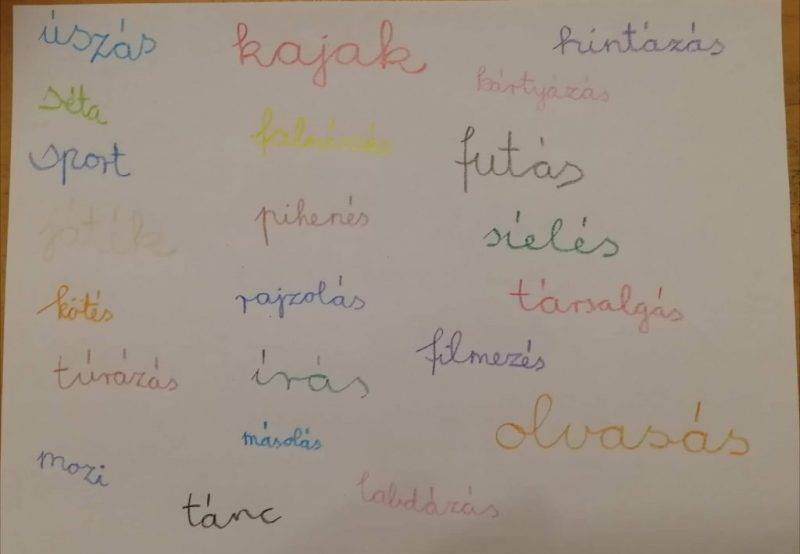 úszás
kajak
hintázás
kártyázás
séta
sport
futás
játék
pihenés
síelés
kötés
rajzolás
társalgás
túrázás
írás
filmezés
másolás
olvasás
mozi
tánc
labdázás